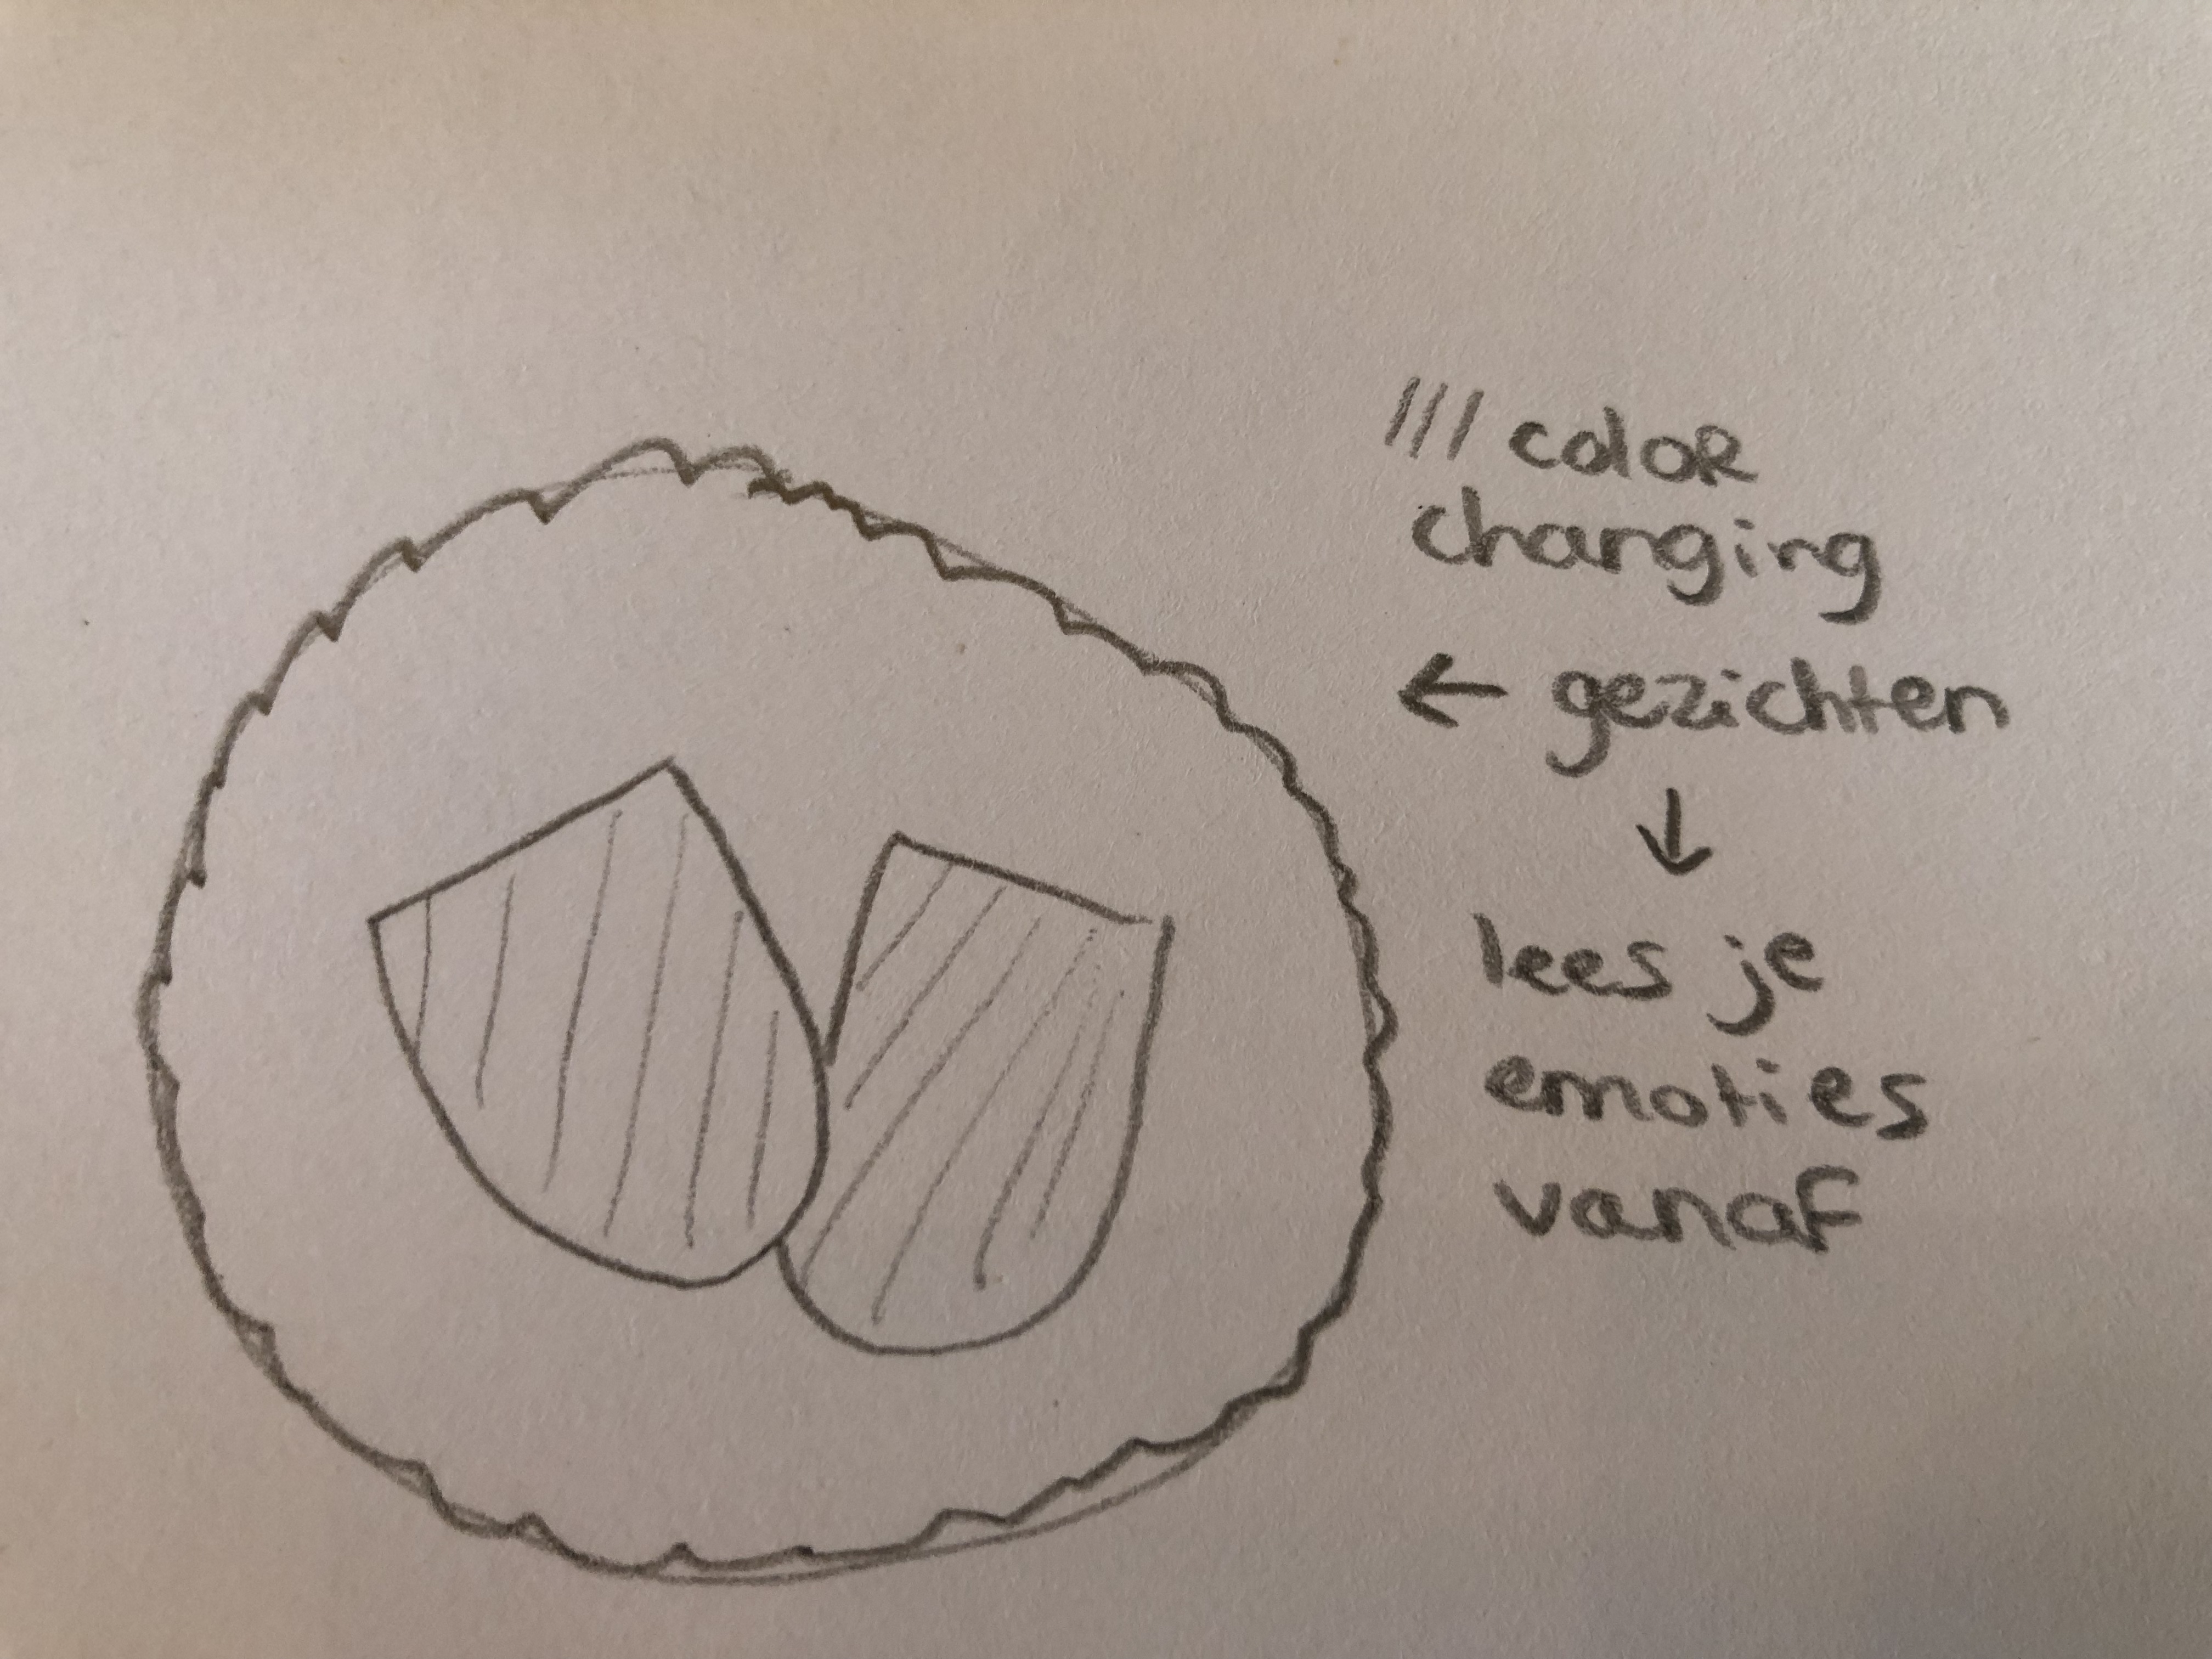 /// color
changing
← gezichten
↓
lees je
emoties
vanaf